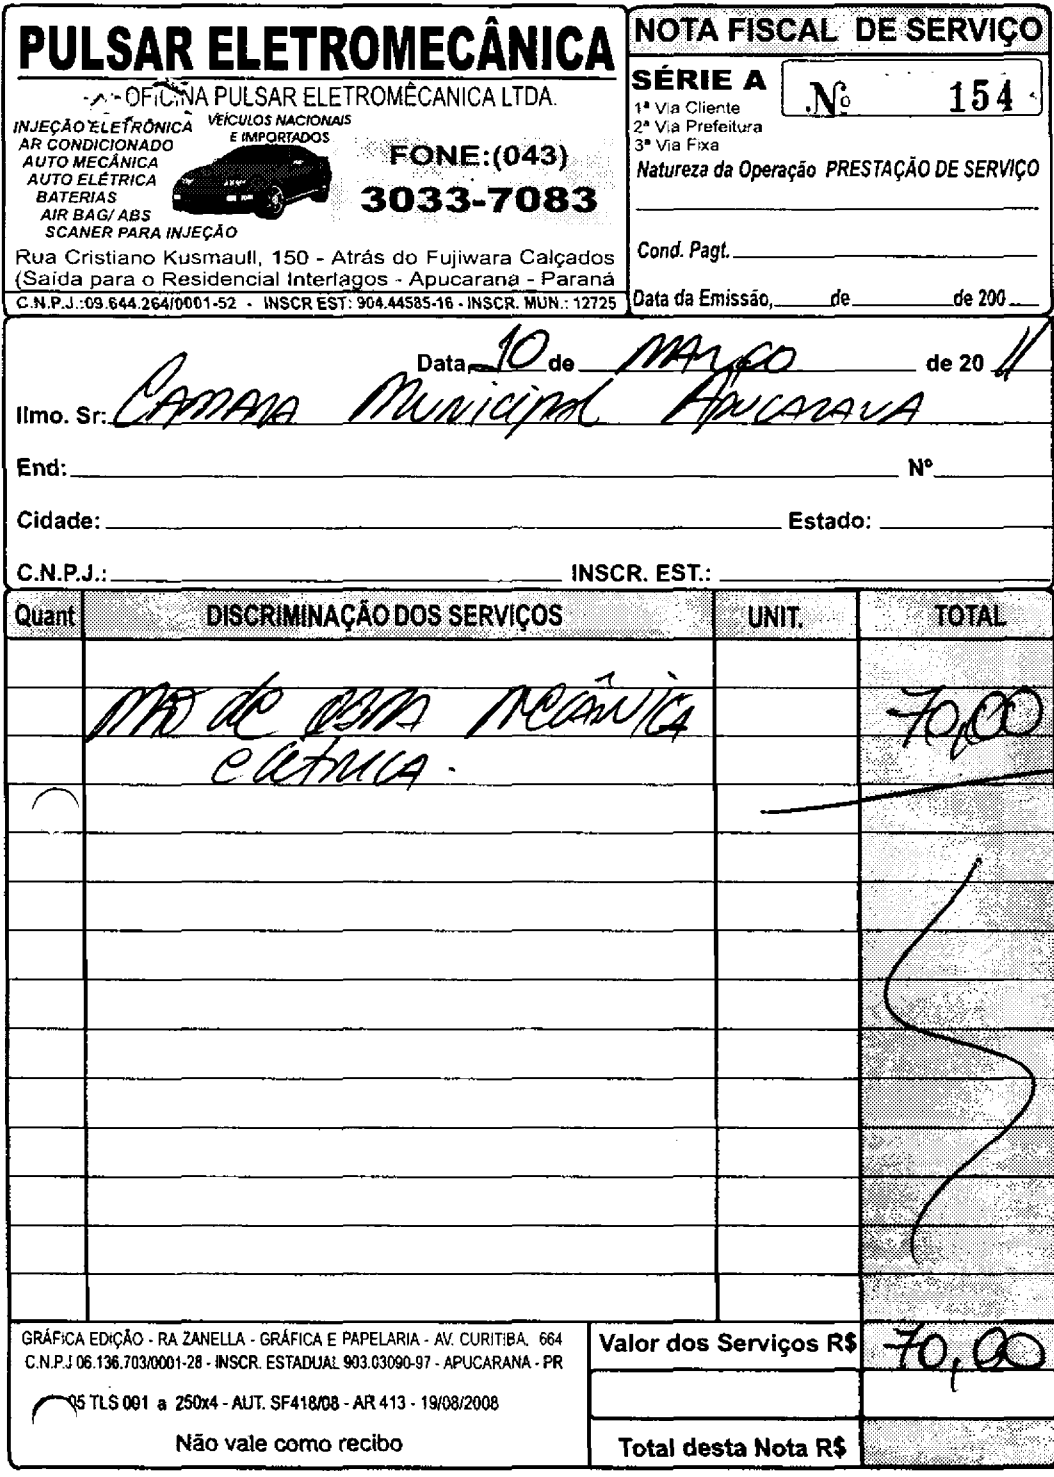 PULSAR ELETROMECÂNICA
OFICINA PULSAR ELETROMÊCANICA LTDA.
INJEÇÃO ELETRÔNICA
AR CONDICIONADO
AUTO MECÂNICA
AUTO ELÉTRICA
BATERIAS
AIR BAG/ ABS
SCANER PARA INJEÇÃO
VEÍCULOS NACIONAIS
E IMPORTADOS
FONE:(043)
3033-7083
Rua Cristiano Kusmaull, 150 - Atrás do Fujiwara Calçados
(Saída para o Residencial Interlagos - Apucarana - Paraná
C.N.P.J.:09.644.264/0001-52 - INSCR EST: 904.44585-16 - INSCR. MUN.: 12725
NOTA FISCAL DE SERVIÇO
SÉRIE A Nº 154
1ª Via Cliente
2ª Via Prefeitura
3ª Via Fixa
Natureza da Operação PRESTAÇÃO DE SERVIÇO
Cond. Pagt.
Data da Emissão, de de 200
Data 10 de Março de 20 11
Ilmo. Sr: Camara Municipal Apucarana
End: Nº
Cidade: Estado:
C.N.P.J.: INSCR. EST.:
Quant DISCRIMINAÇÃO DOS SERVIÇOS UNIT. TOTAL
Mão de obra mecânica 70,00
eletrica.
GRÁFICA EDIÇÃO - RA ZANELLA - GRÁFICA E PAPELARIA - AV. CURITIBA, 664
C.N.P.J 06.136.703/0001-28 - INSCR. ESTADUAL 903.03090-97 - APUCARANA - PR
05 TLS 001 a 250x4 - AUT. SF418/08 - AR 413 - 19/08/2008
Não vale como recibo
Valor dos Serviços R$ 70,00
Total desta Nota R$